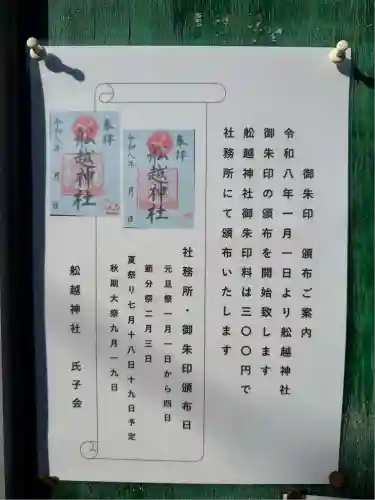 御朱印 頒布ご案内
令和八年一月一日より舩越神社
御朱印の頒布を開始致します
舩越神社御朱印料は三〇〇円で
社務所にて頒布いたします
社務所・御朱印頒布日
元旦祭一月一日から四日
節分祭二月三日
夏祭り七月十八日十九日予定
秋期大祭九月一九日
舩越神社 氏子会
奉拝
舩越神社
令和八年 月 日
奉拝
舩越神社
令和八年 月 日